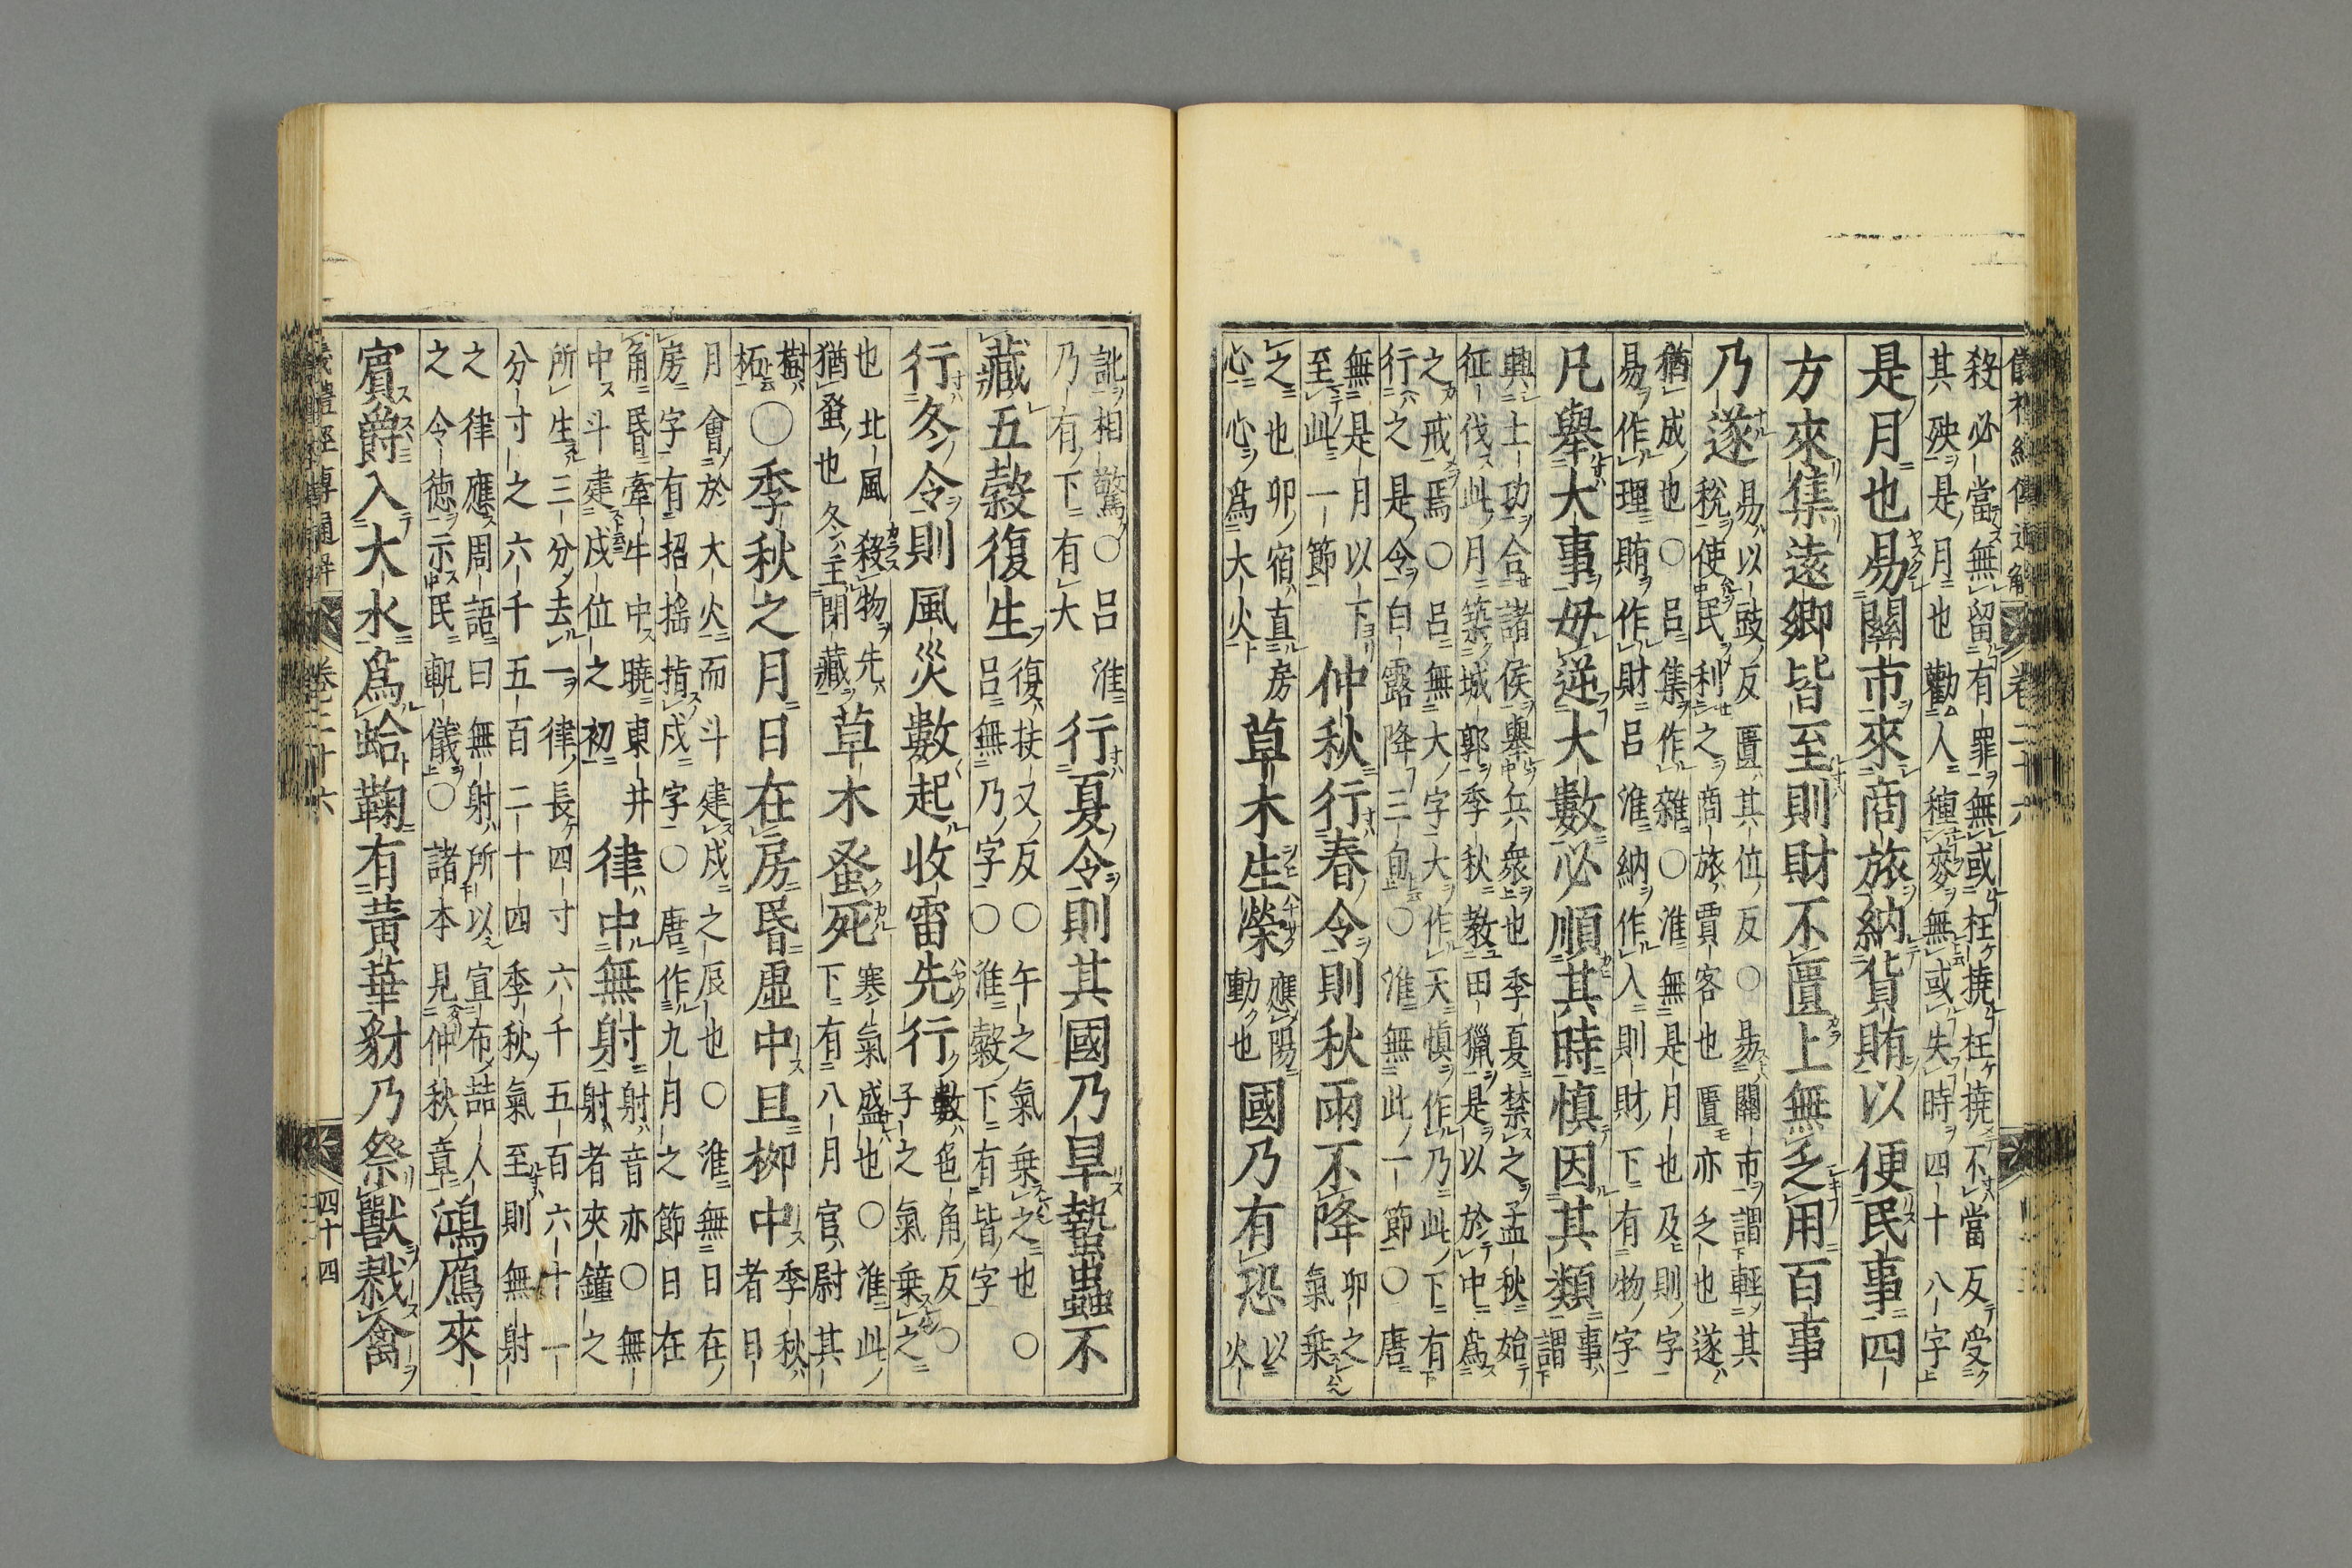 殺必當無留有罪無或枉撓枉撓不當反受
其殃是月也勸人種麥無或失時四十八字
是月也易關市來商旅納貨賄以便民事四
方來集遠鄉皆至則財不匱上無乏用百事
乃遂
易以豉反匱其位反○易關市謂輕其
稅使民利之商旅賈客也匱亦乏也遂
猶成也○呂集作雜○淮無是月也及則字
易作理賄作財呂淮納作入則財下有物字
凡舉大事毋逆大數必順其時慎因其類
事
謂
興土功合諸侯舉兵衆也季夏禁之孟秋始
征伐此月築城郭季秋教田獵是以於中爲
之戒焉○呂無大字大作天慎作乃此下有
行之是令白露降三旬○淮無此一節○唐
無是月以下
至此一節
仲秋行春令則秋雨不降
卯之
氣乗
之也卯宿直房
心心爲大火
草木生榮
應陽
動也
國乃有恐
以
火
訛相驚○呂淮
乃有下有大
行夏令則其國乃旱蟄蟲不
藏五穀復生
復扶又反○午之氣乗之也○
呂無乃字○淮穀下有皆字
行冬令則風災數起收雷先行
數色角反○
子之氣乗之
也北風殺物先
猶蚤也冬主閉藏
草木蚤死
寒氣盛也○淮此
下有八月官尉其
樹
柘
○季秋之月日在房昏虛中旦柳中
季秋
者日
月會於大火而斗建戌之辰也○淮無日在
房字有招搖指戌字○唐作九月之節日在
角昏牽牛中曉東井
中斗建戌位之初
律中無射
射音亦○無
射者夾鐘之
所生三分去一律長四寸六千五百六十一
分寸之六千五百二十四季秋氣至則無射
之律應周語曰無射所以宣布喆人
之令徳示民軌儀○諸本見仲秋章
鴻鴈來
賓爵入大水爲蛤鞠有黃華豺乃祭獸戮禽
卷二十六
四十四